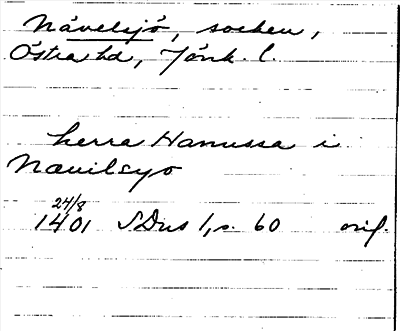 Nävelsjö, socken,
Östra hd, Jönk. l.
herra Hanussa i
Nauilsyo
24/8
1401 SDns 1, s. 60 orig.